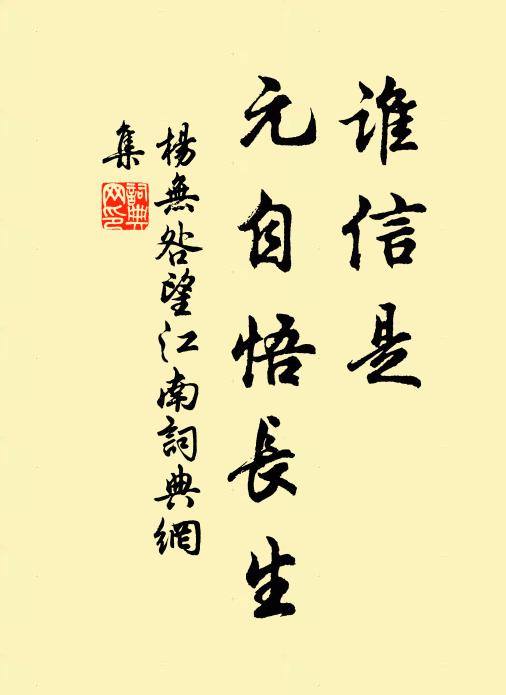 誰信是
元自悟長生
楊無咎望江南詞典網
集
詞典網印